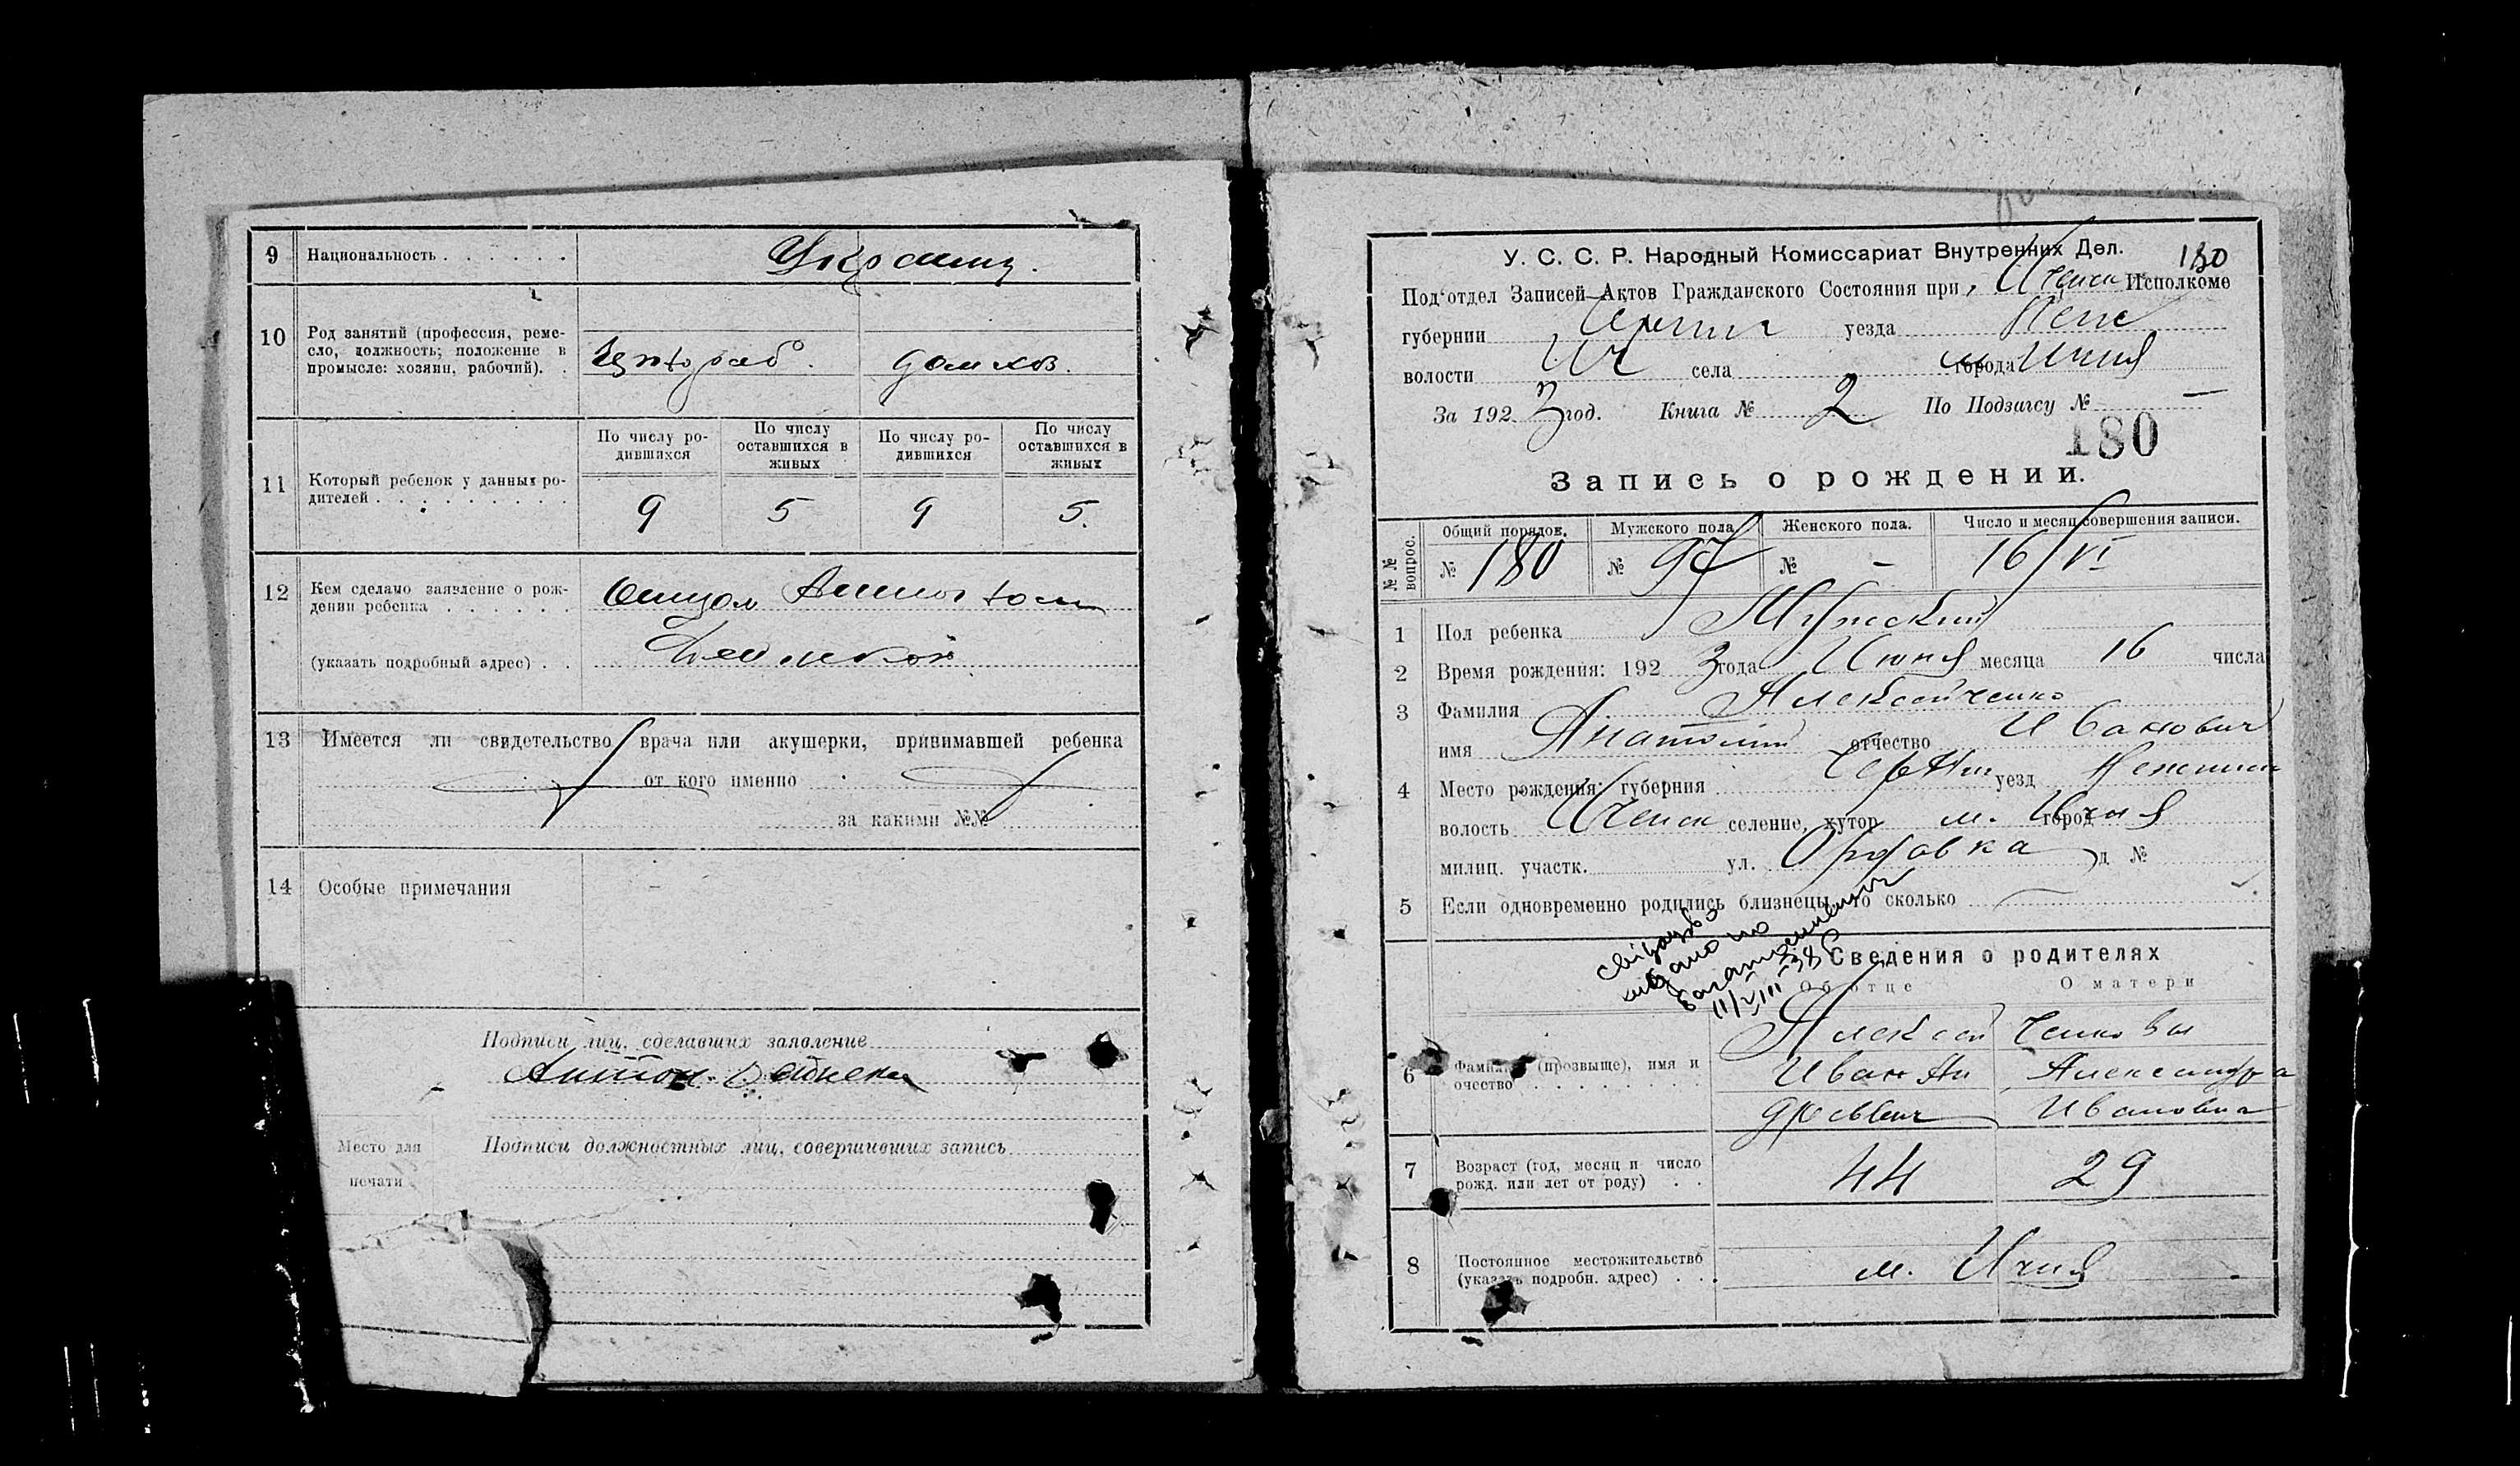 9 Национальность . . . . . . Украинц.
10 Род занятий (профессия, реме-
сло, должность; положение в
промысле: хозяин, рабочий). .
домхоз.
11 Который ребенок у данных ро-
дителей . . . . . . . . .
По числу ро-
дившихся
По числу
оставшихся в
живых
По числу ро-
дившихся
По числу
оставшихся в
живых
9 5 9 5.
12 Кем сделано заявление о рож-
дении ребенка . . . . . .
(указать подробный адрес) . .
13 Имеется ли свидетельство врача или акушерки, принимавшей ребенка
от кого именно
за какими №№
14 Особые примечания -
Подписи лиц, сделавших заявление
Антон
Место для
печати
Подписи должностных лиц, совершивших запись
У. С. С. Р. Народный Комиссариат Внутренних Дел. 180
Под'отдел Записей Актов Гражданского Состояния при Ичнян Исполкоме
губернии Черниг уезда Неж
волости Ич села города м Ичня
За 192 3 год. Книга № 2 По Подзагсу № —
180
Запись о рождении.
№№ вопрос.
Общий порядов. Мужского пола Женского пола. Число и месяц совершения записи.
№ 180 № 97 № - 16/VI
1 Пол ребенка Мужской
2 Время рождения: 192 3 года Июня месяца 16 числа
3 Фамилия Алексейченко
имя Анатолий отчество Иванович
4 Место рождения: губерния Черниг уезд Нежинск
волость Ичнян селение, хутор м. Ичня город
милиц. участк. ул. д №
5 Если одновременно родились близнецы, то сколько
11/VIII 38
Сведения о родителях
Об отце О матери
6 Фамилия (прозвыще), имя и
очество . . . . . . . . .
Алексей ченковы
Иван Ан Александра
дреевич Ивановна
7 Возраст (год, месяц и число
рожд. или лет от роду) . .
44 29
8 Постоянное местожительство
(указать подробн. адрес) . . .
м. Ичня